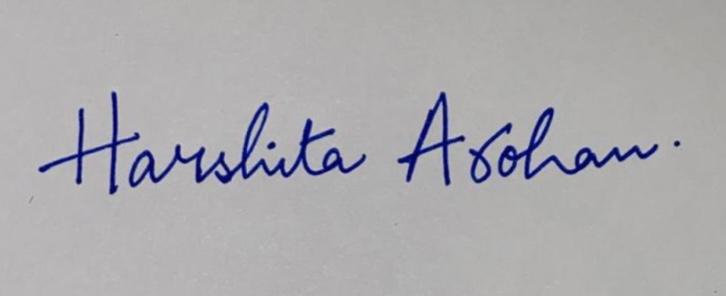 Harshita Arohan.